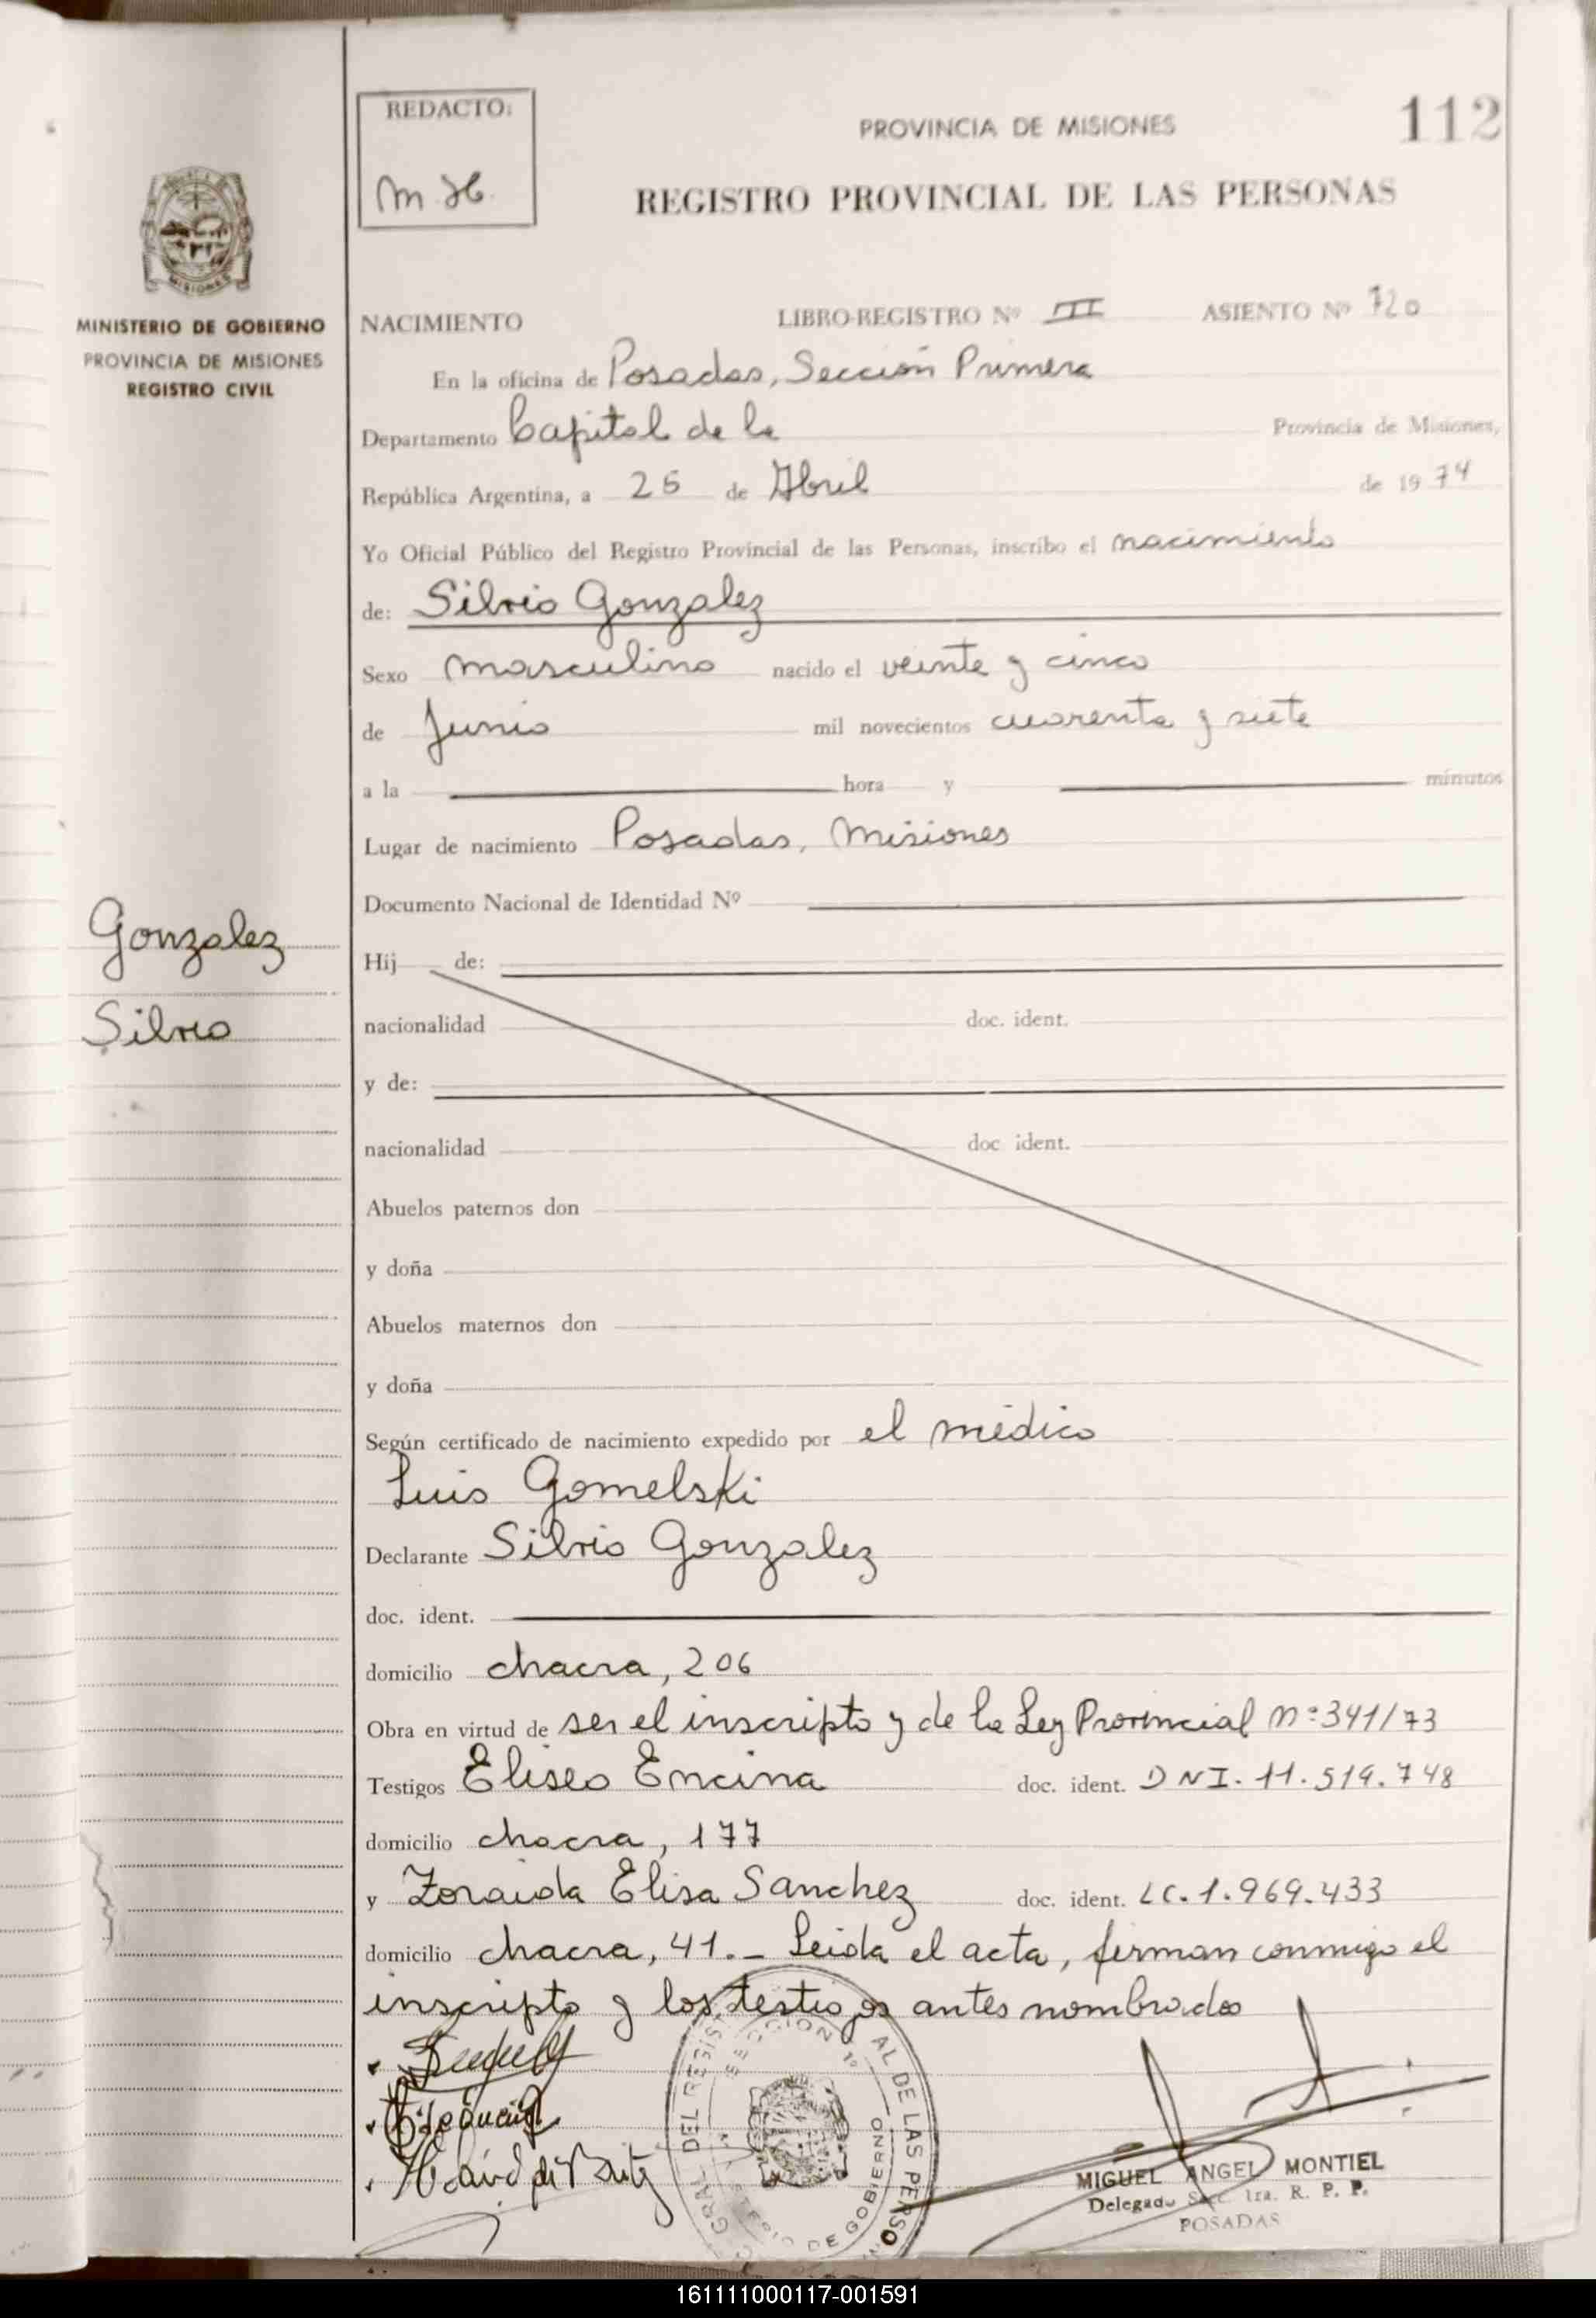 REDACTO:
PROVINCIA DE MISIONES
112
REGISTRO PROVINCIAL DE LAS PERSONAS
MISIONES
MINISTERIO DE GOBIERNO
PROVINCIA DE MISIONES
REGISTRO CIVIL
NACIMIENTO LIBRO-REGISTRO Nº III ASIENTO Nº 720
En la oficina de Posadas, Sección Primera
Departamento Capital de la Provincia de Misiones,
República Argentina, a 25 de Abril de 1974
Yo Oficial Público del Registro Provincial de las Personas, inscribo el nacimiento
de: Silvio Gonzalez
Sexo masculino nacido el veinte y cinco
de Junio mil novecientos cuarenta y siete
a la hora y minutos
Lugar de nacimiento Posadas, Misiones
Documento Nacional de Identidad Nº
Gonzalez
Silvio
Hij de:
nacionalidad doc. ident.
y de:
nacionalidad doc ident.
Abuelos paternos don
y doña
Abuelos maternos don
y doña
Según certificado de nacimiento expedido por el médico
Luis Gomelski
Declarante Silvio Gonzalez
doc. ident.
domicilio chacra, 206
Obra en virtud de ser el inscripto y de la Ley Provincial nº 341/73
Testigos Eliseo Encina doc. ident. DNI. 11.519.748
domicilio chacra, 177
y Zoraida Elisa Sanchez doc. ident. LC. 1.969.433
domicilio chacra, 41.- Leida el acta, firman conmigo el
inscripto y los testigos antes nombrados
MIGUEL ANGEL MONTIEL
Delegado Sec. 1ra. R. P. P.
POSADAS
161111000117-001591